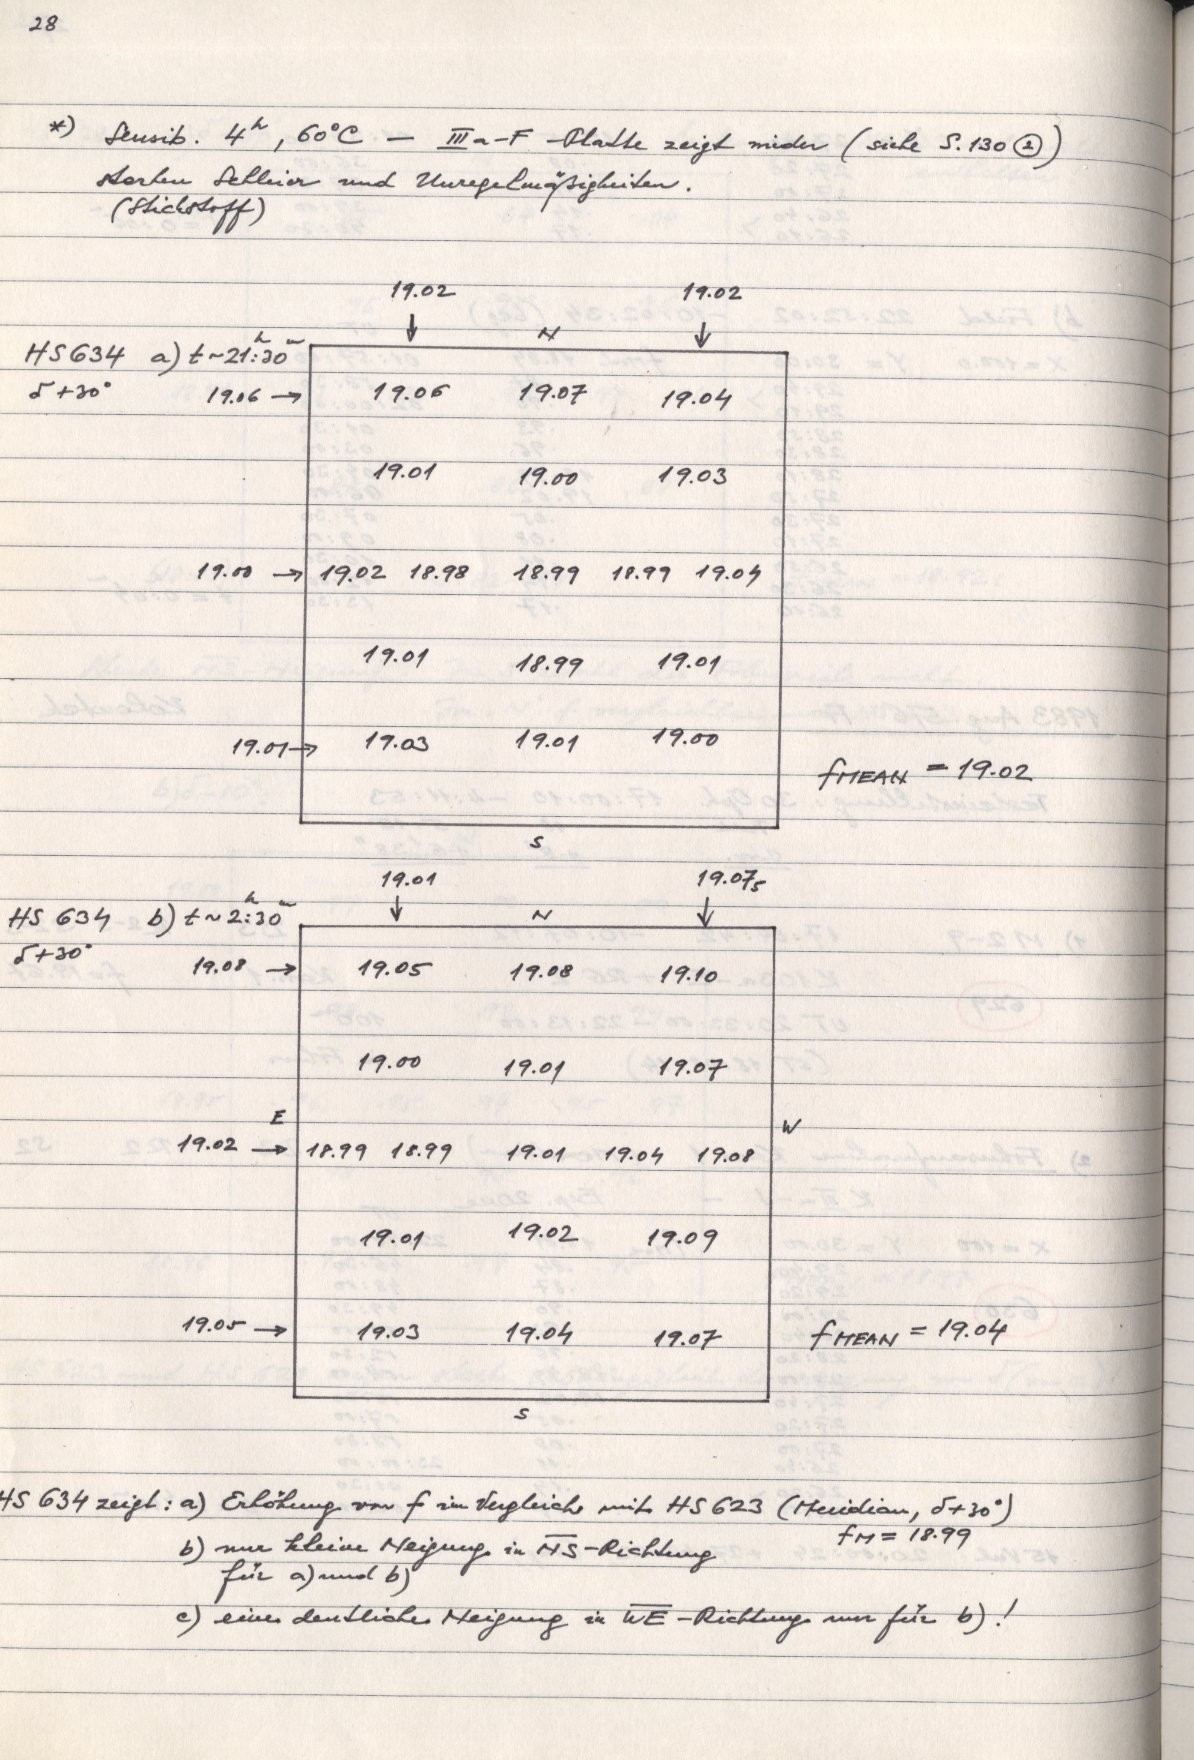 28
*) Sensib. 4h, 60°C — IIIa-F -Platte zeigt wieder (siehe S. 130 ②)
starken Schleier und Unregelmäßigkeiten.
(Stickstoff)
19.02 19.02
↓ N ↓
HS634 a) t~21:30m
δ+30° 19.06 → 19.06 19.07 19.04
19.01 19.00 19.03
19.00 → 19.02 18.98 18.99 18.99 19.04
19.01 18.99 19.01
19.01 → 19.03 19.01 19.00
fMEAN = 19.02
S
19.01 19.075
↓ N ↓
HS 634 b) t~2h:30m
δ+30° 19.08 → 19.05 19.08 19.10
19.00 19.01 19.07
E W
19.02 → 18.99 18.99 19.01 19.04 19.08
19.01 19.02 19.09
19.05 → 19.03 19.04 19.07 fMEAN = 19.04
S
HS 634 zeigt: a) Erhöhung von f im Vergleich mit HS623 (Meridian, δ+30°)
fM = 18.99
b) nur kleine Neigung in NS-Richtung
für a) und b)
c) eine deutliche Neigung in WE-Richtung nur für b)!